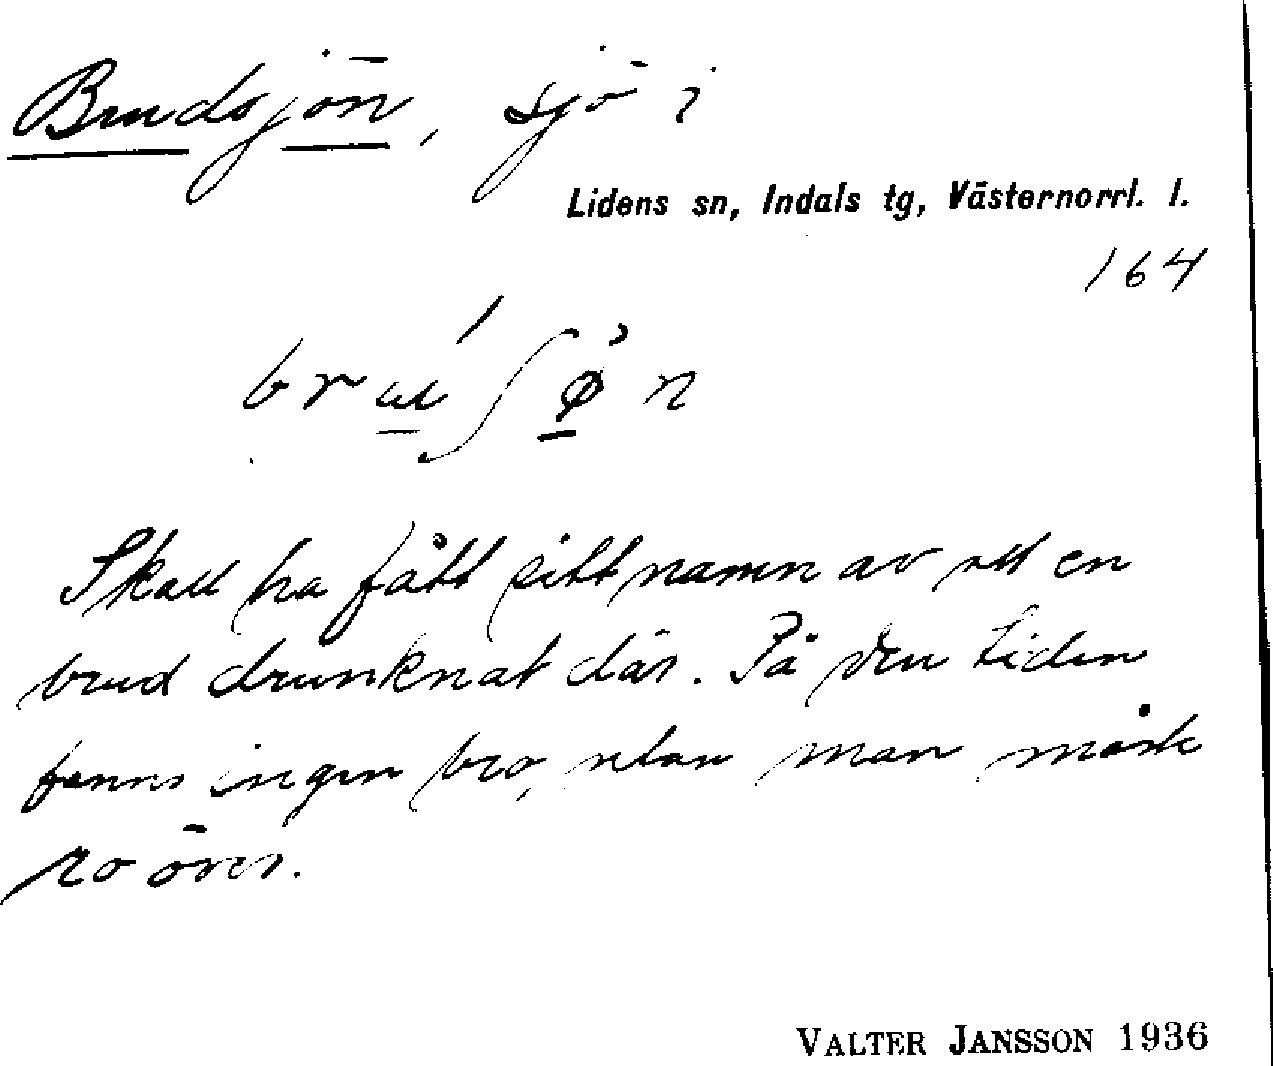 Brudsjön, sjö i
Lidens sn, Indals tg, Västernorrl. l.
164
Skall ha fått sitt namn av att en
brud drunknat där. På den tiden
fanns ingen bro, utan man måste
ro över.
VALTER JANSSON 1936